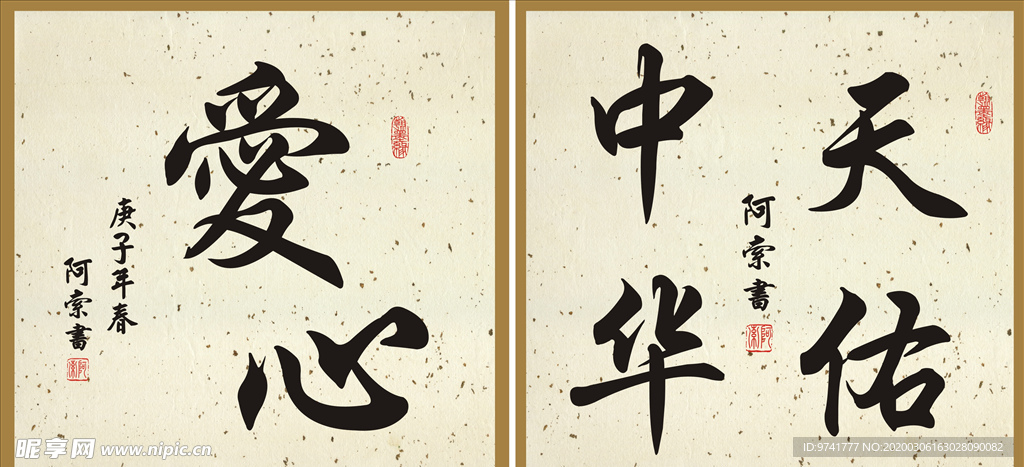 愛心
庚子年春
阿索書
阿索
天佑
中华
阿索書
阿索
昵享网 www.nipic.cn
ID:9741777 NO:20200306163028090082